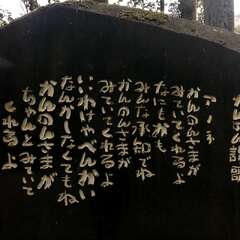 アノネ
かんのんさまが
みていてくれるよ
なにもかも
みんな承知でね
かんのんさまが
みていてくれるよ
いいわけやべんかい
なんかしなくてもね
かんのんさまが
ちゃんとみていて
くれるよ